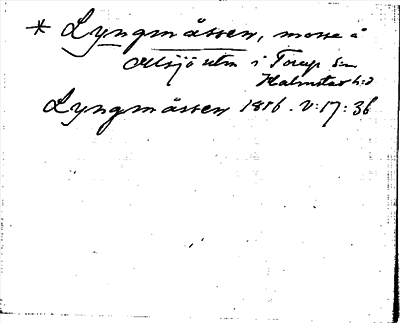 * Lyngmåssen, mosse å
Älsjö utm i Torup sn
Halmstad h:d
Lyngmåssen 1816. V:17:36